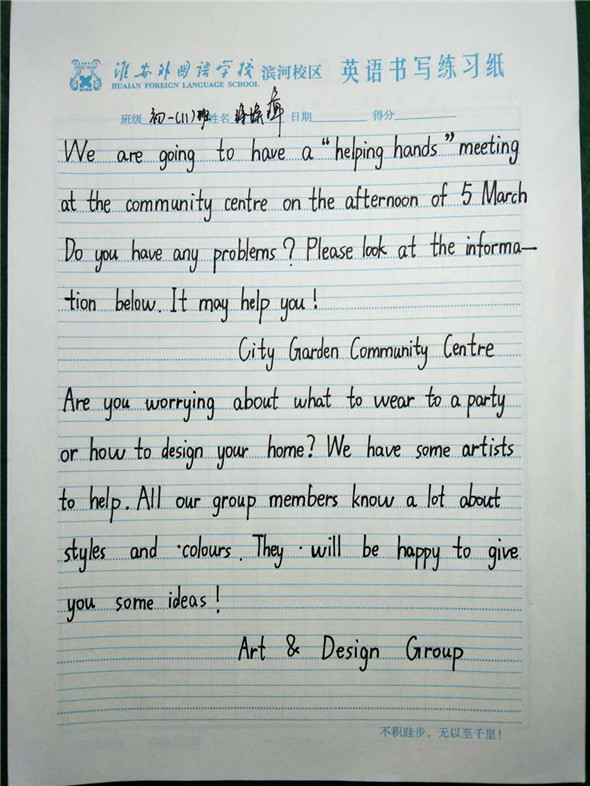 淮安外国语学校 滨河校区 英语书写练习纸
HUAIAN FOREIGN LANGUAGE SCHOOL
班级 初一(11)班 姓名 日期 得分
We are going to have a "helping hands" meeting
at the community centre on the afternoon of 5 March
Do you have any problems? Please look at the informa-
tion below. It may help you!
City Garden Community Centre
Are you worrying about what to wear to a party
or how to design your home? We have some artists
to help. All our group members know a lot about
styles and colours. They will be happy to give
you some ideas!
Art & Design Group
不积跬步，无以至千里！